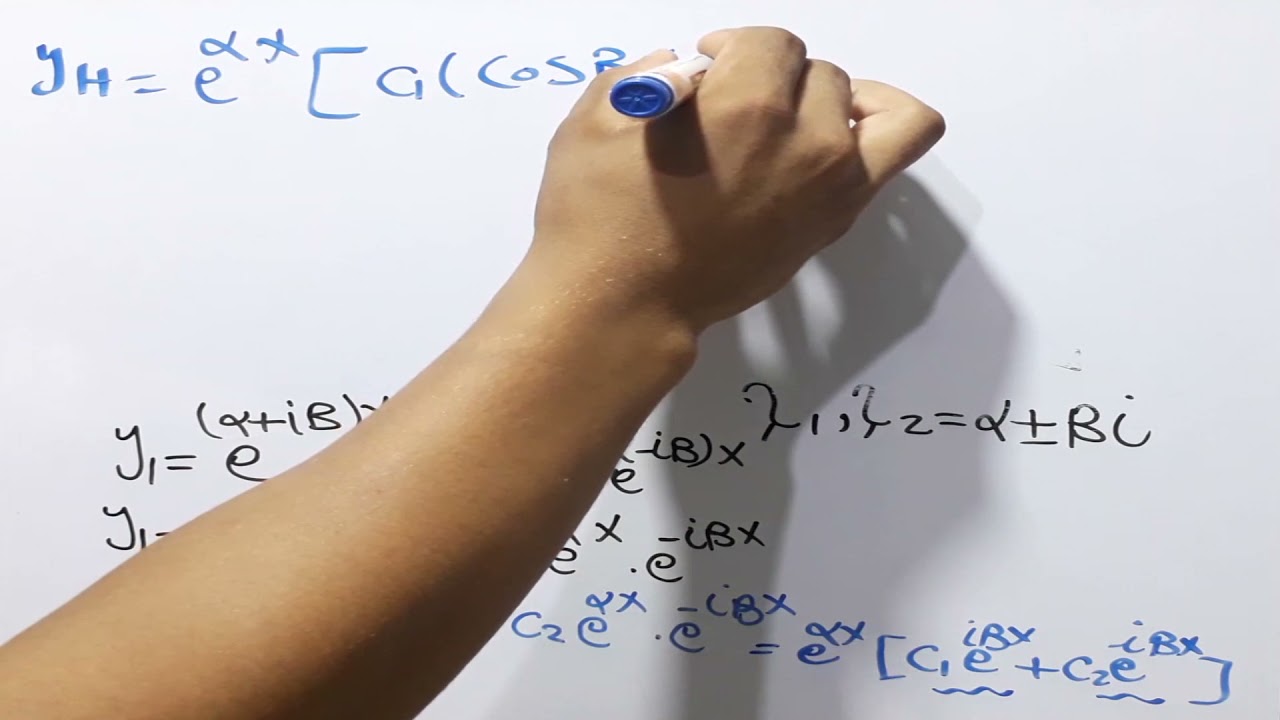 y_H = e^{αx} [ C₁( Cos B
y₁ = e^{(α+iB)x} e^{-iB)x} λ₁, λ₂ = α ± Bi
y₁ = e^{x} . e^{-iBx}
C₂ e^{αx} . e^{-iBx} = e^{αx} [ C₁ e^{iBx} + C₂ e^{-iBx} ]